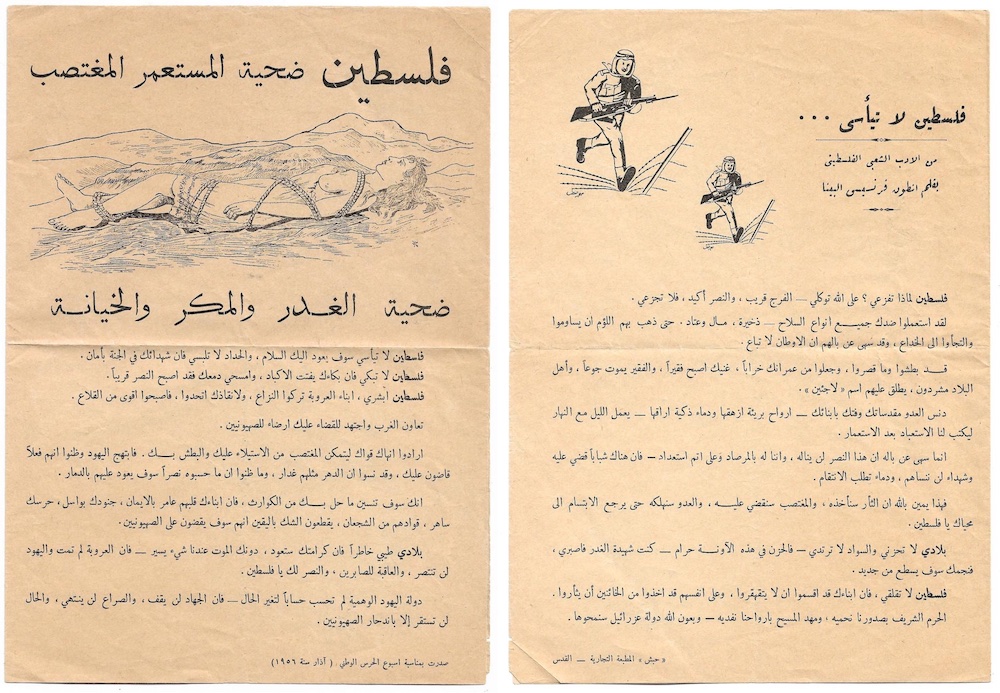 فلسطين لا تيأسي ...
من الادب الشعبي الفلسطيني
بقلم انطون فرنسيس البينا
فلسطين لماذا تفزعي ؟ على الله توكلي — الفرج قريب ، والنصر أكيد ، فلا تجزعي .
لقد استعملوا ضدك جميع انواع السلاح — ذخيرة ، مال وعتاد . حتى ذهب بهم اللؤم ان يساوموا
والتجأوا الى الخداع ، وقد سهى عن بالهم ان الاوطان لا تباع .
قد بطشوا وما قصروا ، وجعلوا من عمرانك خراباً ، غنيك اصبح فقيراً ، والفقير يموت جوعاً ، وأهل
البلاد مشردون ، يطلق عليهم اسم « لاجئين » .
دنس العدو مقدساتك وفتك بابنائك — ارواح بريئة ازهقها ودماء ذكية اراقها — يعمل الليل مع النهار
ليكتب لنا الاستعباد بعد الاستعمار .
انما سهى عن باله ان هذا النصر لن يناله ، واننا له بالمرصاد وعلى اتم استعداد — فان هناك شباباً قضي عليه
وشهداء لن ننساهم ، ودماء تطلب الانتقام .
فهذا يمين بالله ان الثأر سنأخذه ، والمغتصب سنقضي عليه ، والعدو سنهلكه حتى يرجع الابتسام الى
محياك يا فلسطين .
بلادي لا تحزني والسواد لا ترتدي — فالحزن في هذه الآونة حرام — كنت شهيدة الغدر فاصبري ،
فنجمك سوف يسطع من جديد .
فلسطين لا تقلقي ، فان ابناءك قد اقسموا ان لا يتقهقروا ، وعلى انفسهم قد اخذوا من الخائنين أن يثأروا .
الحرم الشريف بصدورنا نحميه ، ومهد المسيح بارواحنا نفديه — وبعون الله دولة عزرائيل سنمحوها .
« حبش » المطبعة التجارية — القدس
فلسطين ضحية المستعمر المغتصب
ضحية الغدر والمكر والخيانة
فلسطين لا تيأسي سوف يعود اليك السلام ، والحداد لا تلبسي فان شهدائك في الجنة بأمان .
فلسطين لا تبكي فان بكاءك يفتت الاكباد ، وامسحي دمعك فقد اصبح النصر قريباً .
فلسطين أبشري ، ابناء العروبة تركوا النزاع ، ولانقاذك اتحدوا ، فاصبحوا اقوى من القلاع .
تعاون الغرب واجتهد للقضاء عليك ارضاء للصهيونيين .
ارادوا انهاك قواك ليتمكن المغتصب من الاستيلاء عليك والبطش بك . فابتهج اليهود وظنوا انهم فعلاً
قاضون عليك ، وقد نسوا ان الدهر مثلهم غدار ، وما ظنوا ان ما حسبوه نصراً سوف يعود عليهم بالدمار .
انك سوف تنسين ما حل بك من الكوارث ، فان ابناءك قلبهم عامر بالايمان ، جنودك بواسل ، حرسك
ساهر ، قوادهم من الشجعان ، يقطعون الشك باليقين انهم سوف يقضون على الصهيونيين .
بلادي طيبي خاطراً فان كرامتك ستعود ، دونك الموت عندنا شيء يسير — فان العروبة لم تمت واليهود
لن تنتصر ، والعاقبة للصابرين ، والنصر لك يا فلسطين .
دولة اليهود الوهمية لم تحسب حساباً لتغير الحال — فان الجهاد لن يقف ، والصراع لن ينتهي ، والحال
لن تستقر إلا بأندحار الصهيونيين .
صدرت بمناسبة اسبوع الحرس الوطني ( آذار سنة ١٩٥٦ )